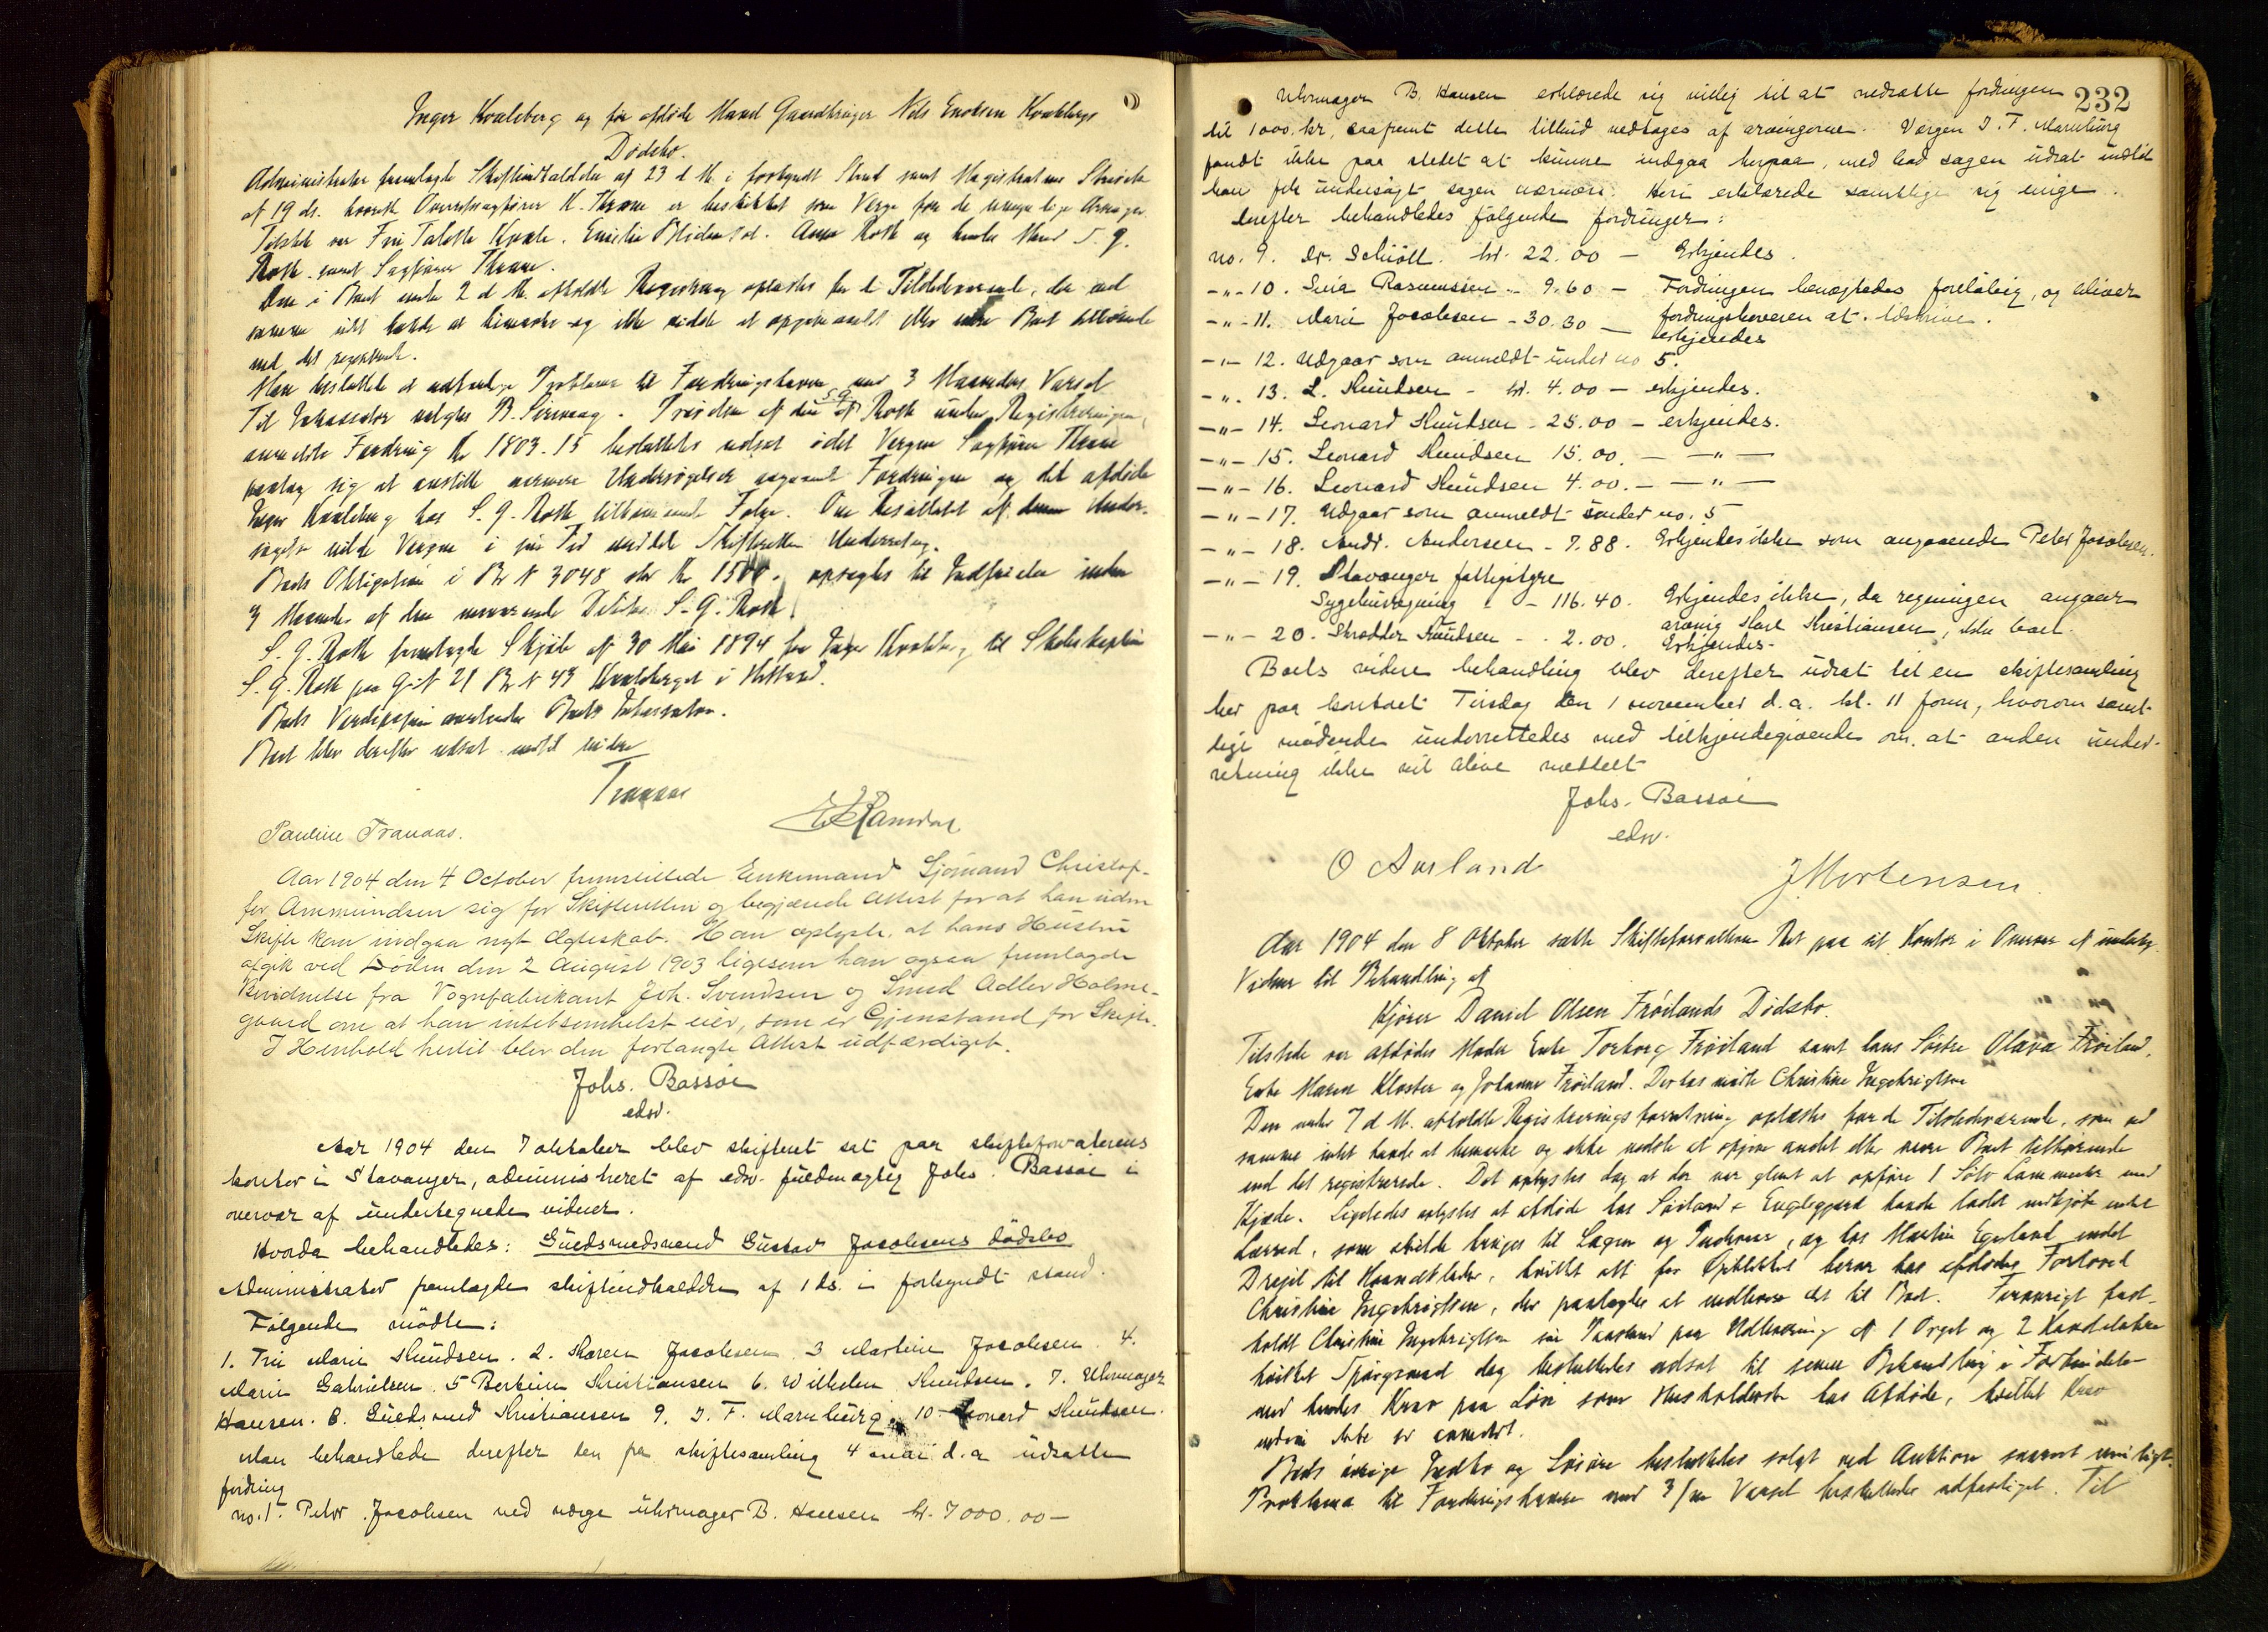 Inger Kvaleberg og før afdøde Mand Gaardbruger Nils Enoksen Kvalebergs
Dødsbo.
Administrator fremlagde Skifteindkaldelse af 23 d M. i forkyndt Stand samt Magistratens Skrivelse
af 19 ds. hvorefter Overretssagfører K. Thrane er beskikket som Verge for de umyndige Arvinger.
Tilstede var Fru Talette Kvale. Emilie Anna Roth og hendes Mand S. G.
Roth samt Sagfører Thrane.
Den i Boet under 2 d M. afholdte Registrering oplæstes for de Tilstedeværende, der ved
samme intet havde at bemærke og ikke vidste at opgive andet eller mere Boet tilhørende
end det registrerede.
Man besluttede at udfærdige Proklama til Fordringshaverne med 3 Maaneders Varsel
Til Inkassator valgtes B. Sirevaag. Prøvelsen af den af S. G. Roth under Registreringen
anmeldte Fordring Kr 1803.15 besluttedes udsat idet Vergen Sagfører Thrane
paatog sig at anstille nærmere Undersøgelser angaaende Fordringen og det afdøde
Inger Kvaleberg hos S. G. Roth tilkommende Følge. Om Resultatet af denne Under-
søgelse vilde Vergen i sin Tid meddele Skifteretten Underretning.
Boets Obligation i Br N 3048 stor Kr 1500. opsagdes til Indfrielse inden
3 Maaneder af den nærværende Debitor S. G. Roth.
S. G. Roth fremlagde Skjøde af 30 Mai 1894 fra Inger Kvaleberg til Skibskaptein
S. G. Roth paa G. N 21 Br N 43 Kvaleberget i Hetland.
Boets Verdipapirer Boets Inkassator.
Boet blev derefter udsat indtil videre
Tranaas
E Ramsdal
Pauline Tranaas.
Aar 1904 den 4 October fremstillede Enkemand Sjømand Christof-
fer Ammundsen sig for Skifteretten og begjærede Attest for at han uden
Skifte kan indgaa nyt Ægteskab. Han oplyste, at hans Hustru
afgik ved Døden den 2 August 1903 ligesom han ogsaa fremlagde
Bevidnelse fra Vognfabrikant Joh. Svendsen og Smed Adler Holme-
gaard om at han intetsomhelst eier, som er Gjenstand for Skifte.
I Henhold hertil blev den forlangte Attest udfærdiget.
Johs. Bassøe
edsv.
Aar 1904 den 7 oktober blev skifteret sat paa skifteforvalterens
kontor i Stavanger, administreret af edsv. fuldmægtig Johs. Bassøe i
overvær af undertegnede vidner.
Hvorda behandledes: Guldsmedsvend Gustav Jacobsens dødsbo
Administrator fremlagde skifteindkaldelse af 1 ds. i forkyndt stand.
Følgende mødte:
1. Fru Marie Knudsen. 2. Maren Jacobsen 3 Martine Jacobsen 4.
Marie Gabrielsen. 5 Bertine Kristiansen 6. Wilhelm Knudsen. 7. Uhrmager
Hansen. 8. Guldsmed Kristiansen 9. J. F. Marnburg. 10. Leonard Knudsen.
Man behandlede derefter den paa skiftesamling 4 mai d.a udsatte
fordring
no. 1. Peter Jacobsen ved værge uhrmager B. Hansen kr. 7000.00 —
232
Uhrmager B. Hansen erklærede sig villig til at nedsætte fordringen
til 1000. kr, saafremt dette tilbud vedtages af arvingerne. Værgen J. F. Marnburg
fandt ikke paa stedet at kunne indgaa herpaa, med bad sagen udsat indtil
han fik undersøgt sagen nærmere. Heri erklærede samtlige sig enige.
Derefter behandledes følgende fordringer:
no. 9. Dr. Schiøtt. kr. 22.00 — Erkjendes.
-"- 10. Lina Rasmussen - 9.60 - Fordringen benægtedes foreløbig, og bliver
fordringshaveren at tilskrive.
-"- 11. Marie Jacobsen - 30.30 — erkjendes
-"- 12. Udgaar som anmeldt under no 5.
-"- 13. L. Knudsen - kr. 4.00 — erkjendes.
-"- 14. Leonard Knudsen - 25.00 — erkjendes.
-"- 15. Leonard Knudsen 15.00. — -"-
-"- 16. Leonard Knudsen 4.00. — -"-
-"- 17. Udgaar som anmeldt under no. 5
-"- 18. Andr. Andersen - 7.88. Erkjendes ikke som angaaende Peter Jacobsen.
-"- 19. Stavanger fattigstyre
Sygehusregning - 116.40. Erkjendes ikke, da regningen angaar
arving Karl Kristiansen, ikke boet.
-"- 20. Skrædder Knudsen - - 2.00. Erkjendes.
Boets videre behandling blev derefter udsat til en skiftesamling
her paa kontoret Tirsdag den 1 november d.a. kl. 11 form, hvorom samt-
lige mødende underrettedes med tilkjendegivende om, at anden under-
retning ikke vil blive meddelt
Johs. Bassøe
edsv.
O Aurland
J Mortensen.
Aar 1904 den 8 Oktober satte Skifteforvalteren Ret paa sit Kontor i Overvær af undertegn.
Vidner til Behandling af
Kjører Daniel Olsen Frøilands Dødsbo.
Tilstede var afdødes Moder Enke Torborg Frøiland samt hans Søstre Olava Frøiland,
Enke Maren Kloster og Johanne Frøiland. Derhos mødte Christine Ingebrigtsen
Den under 7 d M. afholdte Registreringsforretning oplæstes for de Tilstedeværende, som ved
samme intet havde at bemærke og ikke vidste at opgive andet eller mere Boet tilhørende
end det registrerede. Det oplystes dog at der var glemt at opføre 1 Sølv Lommeuhr med
Kjæde. Ligeledes oplystes at afdøde hos Sørland & Englegaard havde ladet indkjøbe endel
Lærred, som skulde bruges til Lagen og , og hos Martin Egeland endel
Dreiel til Haandklæder, hvilket alt for Øieblikket beror hos afdødes Forlovede
Christine Ingebrigtsen, der paalagdes at indlevere det til Boet. Forøvrigt fast-
holdt Christine Ingebrigtsen sin Paastand paa Udlevering af 1 Orgel og 2 Kandelabre
hvilket Spørgsmaal dog besluttedes udsat til senere Behandling i Forbindelse
med hendes Krav paa Løn som Husholderske hos Afdøde, hvilket Krav
endnu ikke er anmeldt.
Boets øvrige Indbo og Løsøre besluttedes solgt ved Auktion snarest muligt.
Proklama til Fordringshavere med 3 Varsel besluttedes udfærdiget. Til